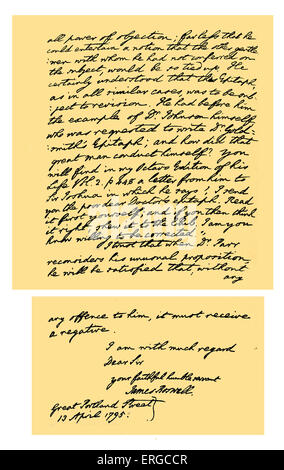 all power of objection; far less that he
could entertain a notion that the other gentle
men with whom he had not conferred on
the subject, would be so tied up. He
certainly understood that the Epitaph,
as in all similar cases, was to be sub
ject to revision. He had before him
the example of Dr. Johnson himself,
who was requested to write Dr. Gold-
smith's Epitaph; and how did that
great man conduct himself? You
will find in my Octavo Edition of his
Life Vol. 2. p. 448 a letter from him to
Sir Joshua in which he says, I send
you the poor dear Doctor's epitaph. Read
it first yourself; and if you then think
it right, shew it to the Club. I am, you
know willing to be corrected.
I trust that when Dr. Parr
reconsiders his unusual proposition,
he will be satisfied that, without
any
any offence to him, it must receive
a negative.
I am with much regard
Dear Sir
your faithful humble servant
James Boswell.
Great Portland Street
13 April 1795.
alamy stock photo
ERGCCR
www.alamy.com